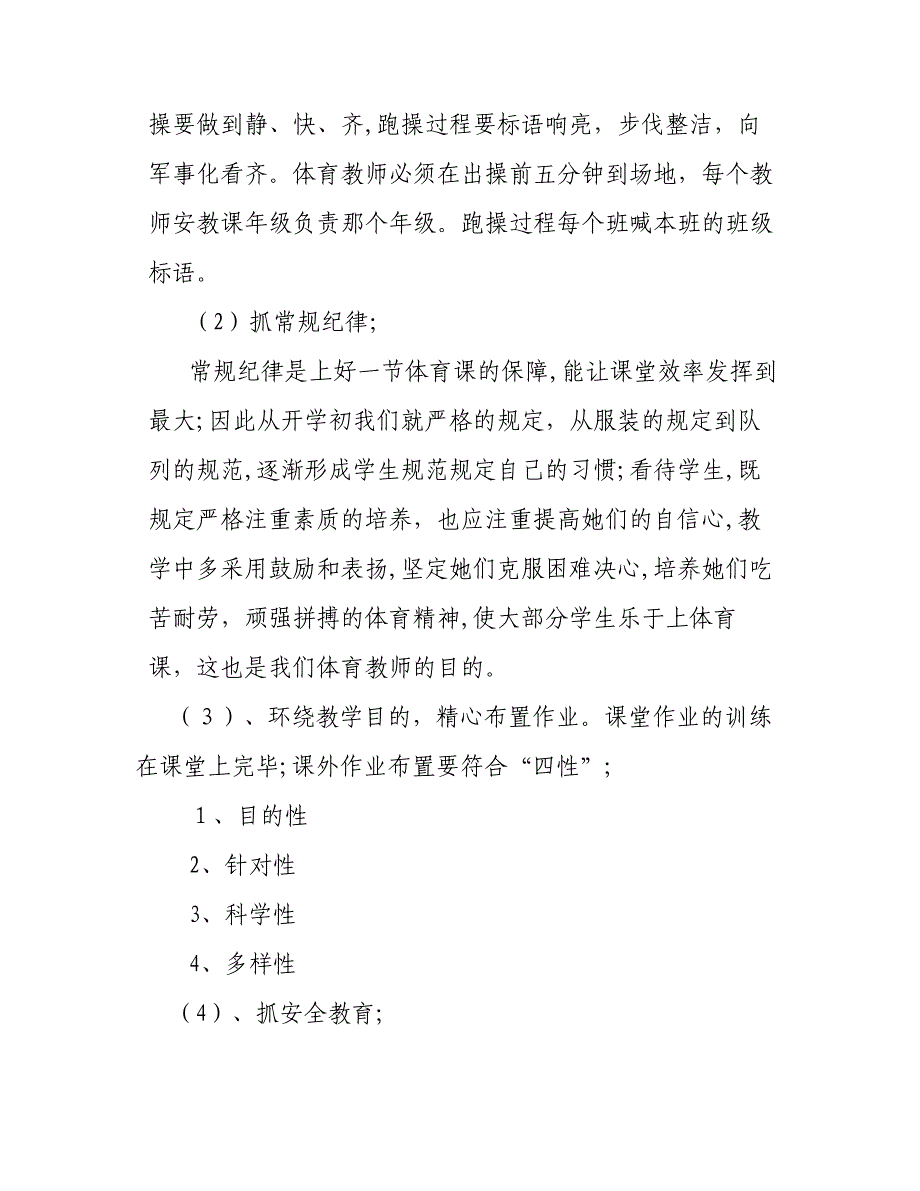 操要做到静、快、齐,跑操过程要标语响亮，步伐整洁，向
军事化看齐。体育教师必须在出操前五分钟到场地，每个教
师安教课年级负责那个年级。跑操过程每个班喊本班的班级
标语。
（2）抓常规纪律;
常规纪律是上好一节体育课的保障,能让课堂效率发挥到
最大;因此从开学初我们就严格的规定，从服装的规定到队
列的规范,逐渐形成学生规范规定自己的习惯;看待学生,既
规定严格注重素质的培养，也应注重提高她们的自信心,教
学中多采用鼓励和表扬,坚定她们克服困难决心,培养她们吃
苦耐劳，顽强拼搏的体育精神,使大部分学生乐于上体育
课，这也是我们体育教师的目的。
（３）、环绕教学目的，精心布置作业。课堂作业的训练
在课堂上完毕;课外作业布置要符合“四性”;
１、目的性
2、针对性
3、科学性
4、多样性
（4）、抓安全教育;